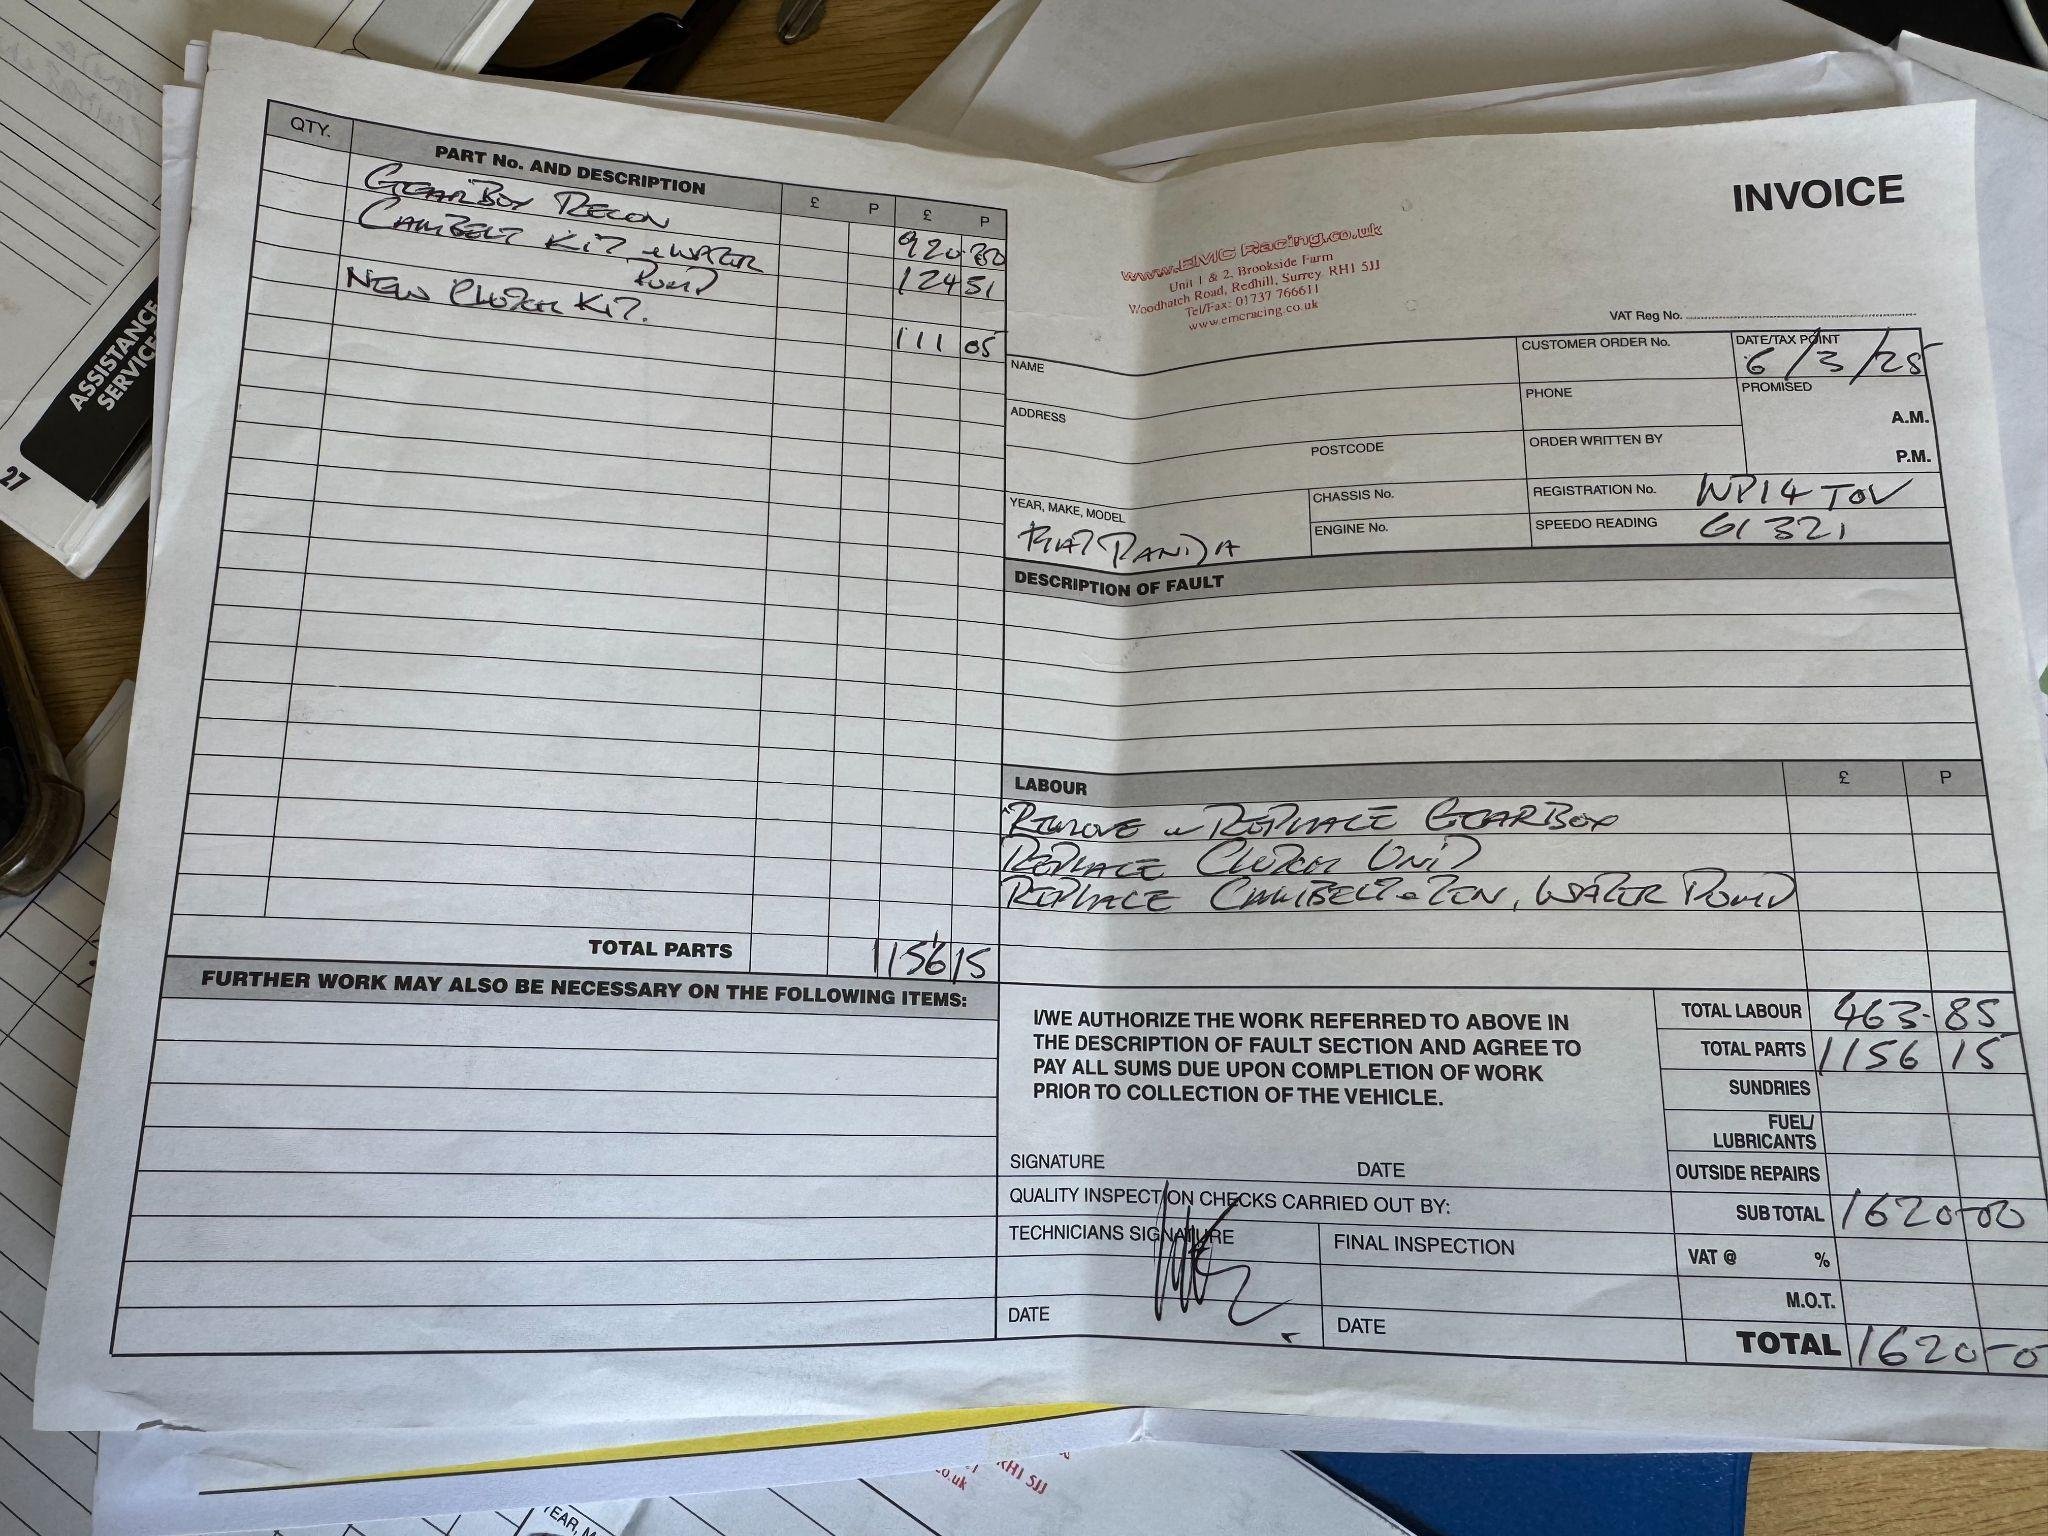 QTY. PART No. AND DESCRIPTION £ P £ P
GEARBOX RECON 920
CAMBELT KIT & WATER 124 51
PUMP
NEW CLUTCH KIT. 111 05
TOTAL PARTS 1156 15
FURTHER WORK MAY ALSO BE NECESSARY ON THE FOLLOWING ITEMS:
INVOICE
www.EMC Racing.co.uk
Unit 1 & 2, Brookside Farm
Woodhatch Road, Redhill, Surrey. RH1 5JJ
Tel/Fax: 01737 766611
www.emcracing.co.uk
VAT Reg No.
NAME
CUSTOMER ORDER No.
DATE/TAX POINT
6/3/25
ADDRESS
PHONE
PROMISED
A.M.
POSTCODE
ORDER WRITTEN BY
P.M.
YEAR, MAKE, MODEL
FIAT PANDA
CHASSIS No.
REGISTRATION No. WP14 TOV
ENGINE No.
SPEEDO READING 61321
DESCRIPTION OF FAULT
LABOUR £ P
REMOVE & REPLACE GEARBOX
REPLACE CLUTCH UNIT
REPLACE CAMBELT & TEN, WATER PUMP
I/WE AUTHORIZE THE WORK REFERRED TO ABOVE IN
THE DESCRIPTION OF FAULT SECTION AND AGREE TO
PAY ALL SUMS DUE UPON COMPLETION OF WORK
PRIOR TO COLLECTION OF THE VEHICLE.
SIGNATURE DATE
QUALITY INSPECTION CHECKS CARRIED OUT BY:
TECHNICIANS SIGNATURE
FINAL INSPECTION
DATE
DATE
TOTAL LABOUR 463-85
TOTAL PARTS 1156 15
SUNDRIES
FUEL/
LUBRICANTS
OUTSIDE REPAIRS
SUB TOTAL 1620-00
VAT @ %
M.O.T.
TOTAL 1620-0
ASSISTANCE
SERVICE
27
.co.uk
RH1 5JJ
YEAR, M